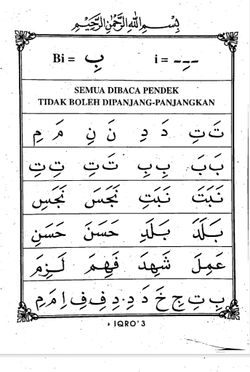 بِسْمِ اللهِ الرَّحْمٰنِ الرَّحِيْمِ
Bi = بِ i = ـِـ
SEMUA DIBACA PENDEK
TIDAK BOLEH DIPANJANG-PANJANGKAN
تَ تِ دَ دِ نَ نِ مَ مِ
بَ بَ بِ بِ تَ تَ تِ تِ
نَبَتَ نَبَتِ نَجَسَ نَجَسِ
بَلَدَ بَلَدِ حَسَنَ حَسَنِ
عَمِلَ شَهِدَ فَهِمَ لَزِمَ
بِ تِ جِ خِ دَ دِ دِ فِ فِ اِ مَ مِ
IQRO' 3